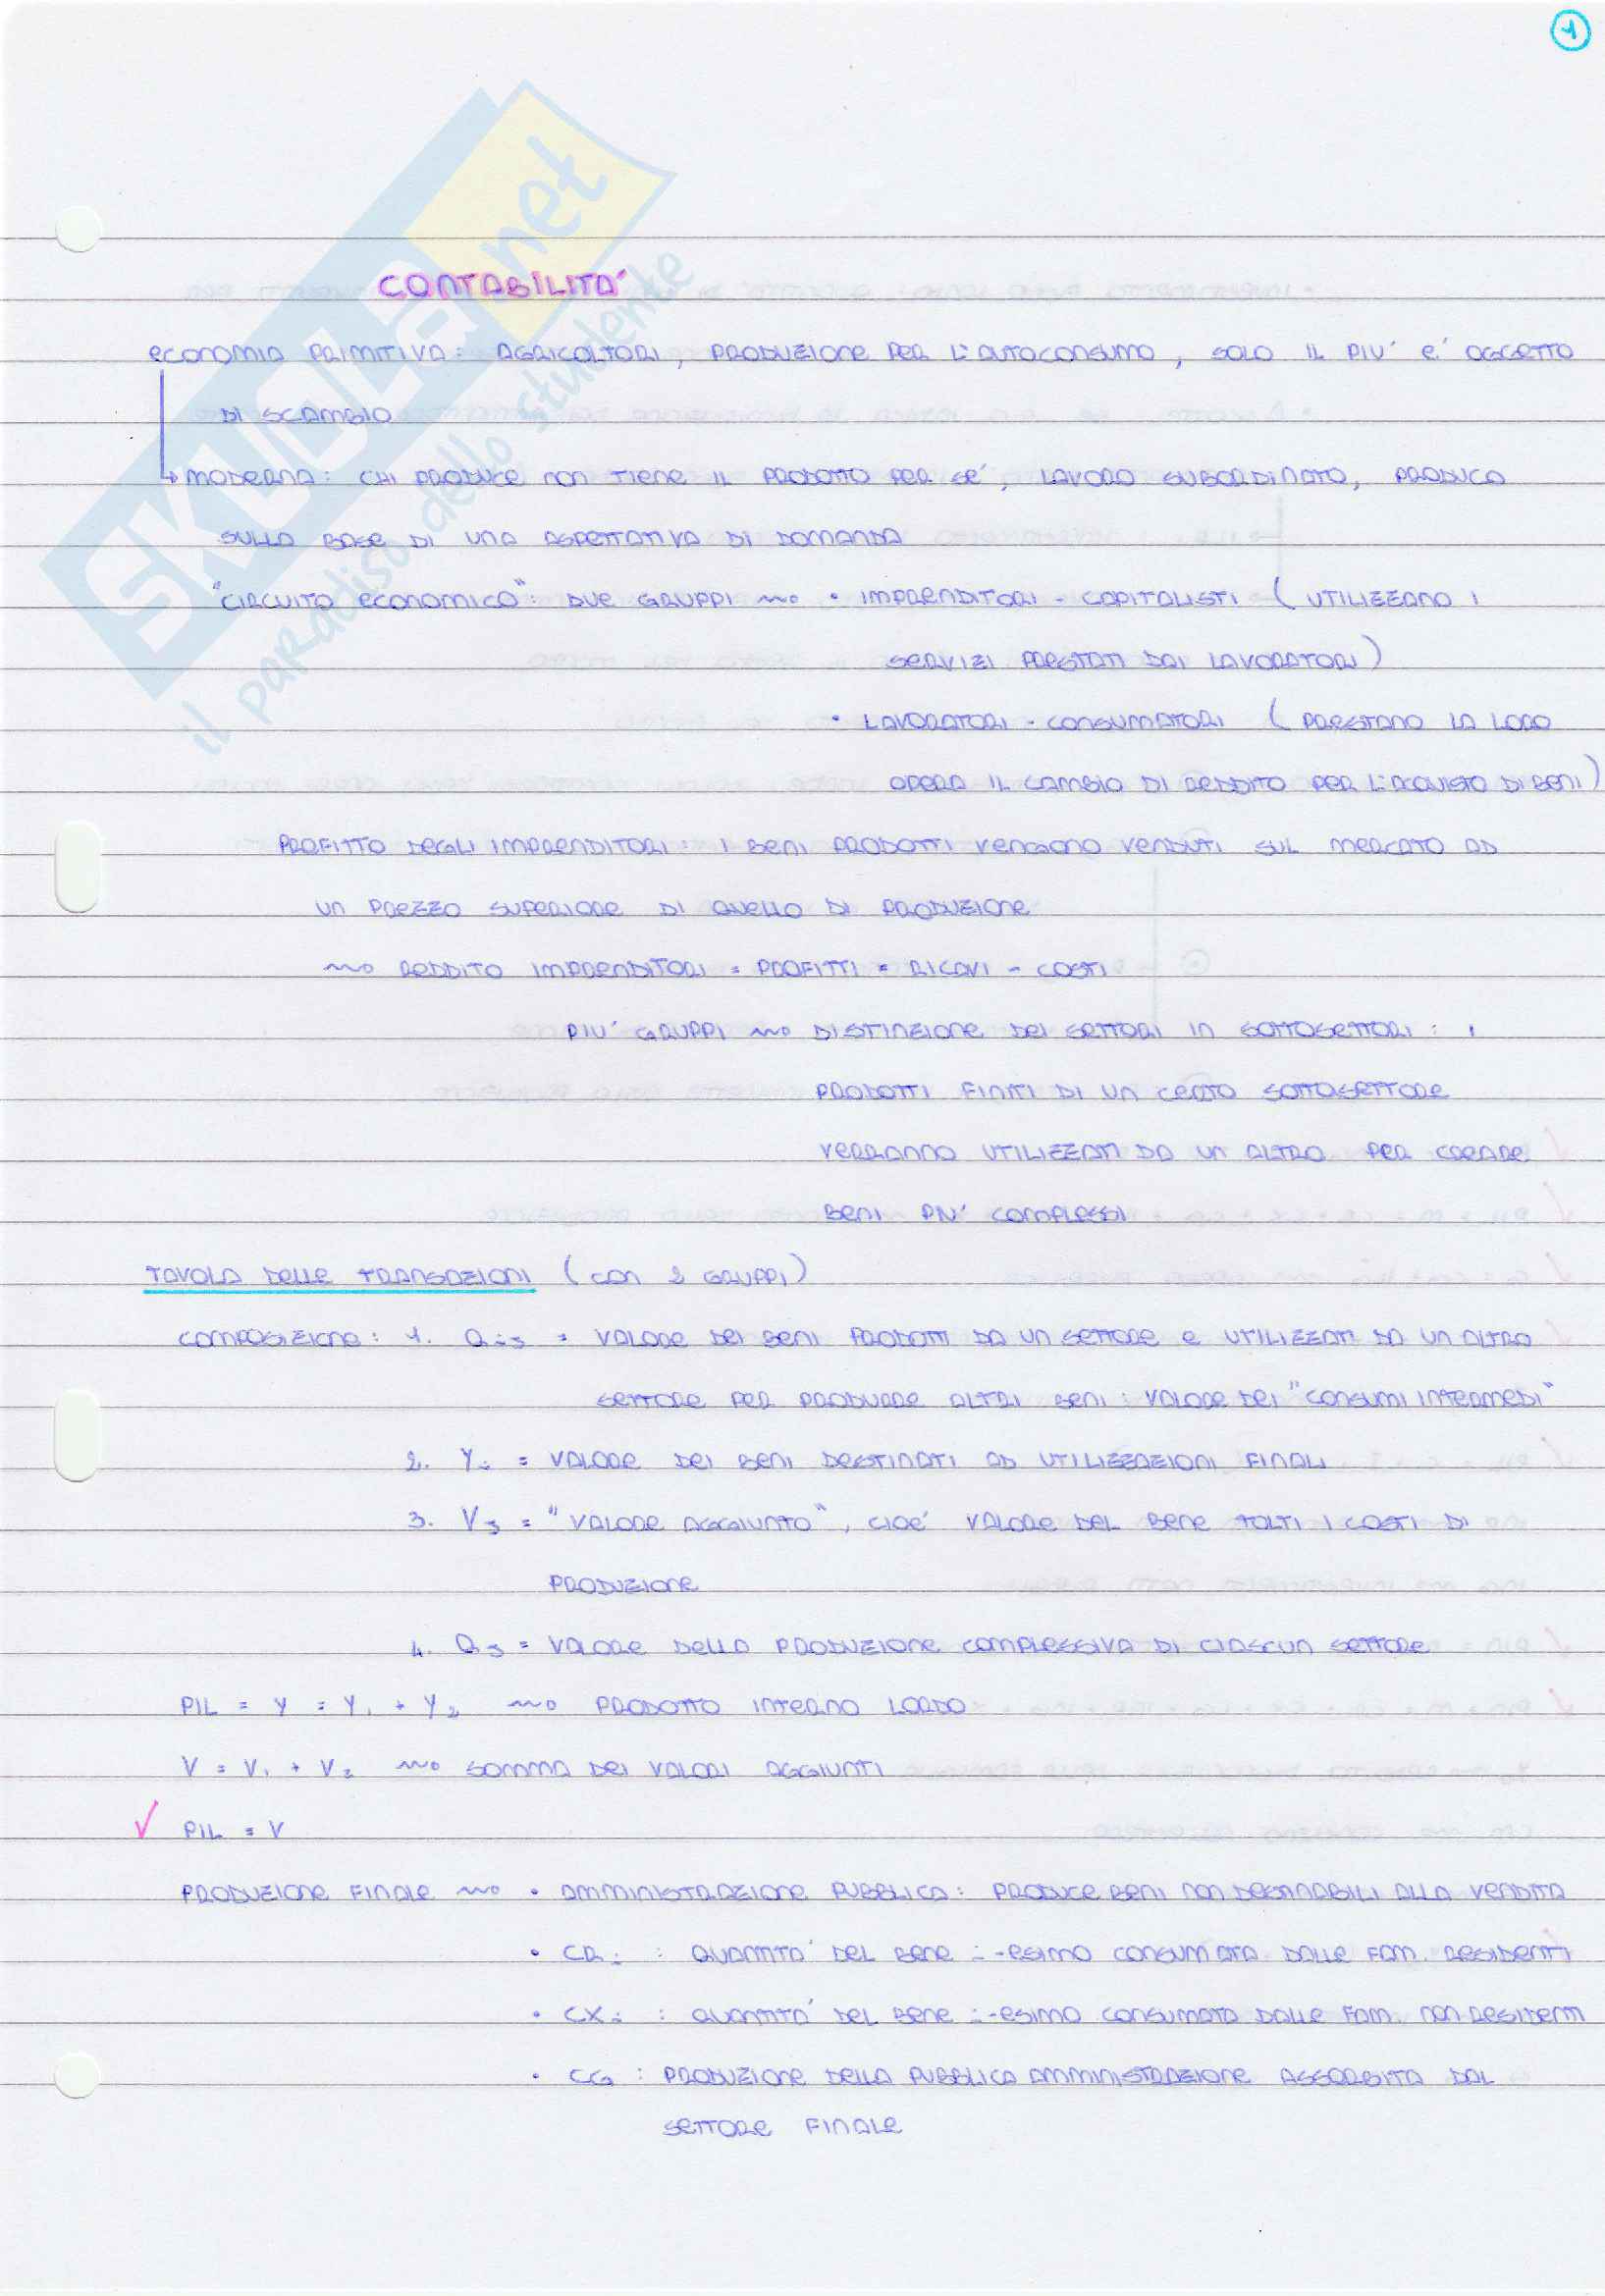 1
SKUOLA.net
il paradiso dello studente
CONTABILITA'
ECONOMIA PRIMITIVA: AGRICOLTORI, PRODUZIONE PER L'AUTOCONSUMO, SOLO IL PIU' E' OGGETTO
DI SCAMBIO
MODERNA: CHI PRODUCE NON TIENE IL PRODOTTO PER SE', LAVORO SUBORDINATO, PRODUCO
SULLA BASE DI UNA ASPETTATIVA DI DOMANDA
"CIRCUITO ECONOMICO": DUE GRUPPI ⇝ • IMPRENDITORI - CAPITALISTI (UTILIZZANO I
SERVIZI PRESTATI DAI LAVORATORI)
• LAVORATORI - CONSUMATORI (PRESTANO LA LORO
OPERA IL CAMBIO DI REDDITO PER L'ACQUISTO DI BENI)
PROFITTO DEGLI IMPRENDITORI: I BENI PRODOTTI VENGONO VENDUTI SUL MERCATO AD
UN PREZZO SUPERIORE DI QUELLO DI PRODUZIONE
⇝ REDDITO IMPRENDITORI = PROFITTI = RICAVI - COSTI
PIU' GRUPPI ⇝ DISTINZIONE DEI SETTORI IN SOTTOSETTORI: I
PRODOTTI FINITI DI UN CERTO SOTTOSETTORE
VERRANNO UTILIZZATI DA UN ALTRO PER CREARE
BENI PIU' COMPLESSI
TAVOLA DELLE TRANSAZIONI (CON 2 GRUPPI)
COMPOSIZIONE: 1. Qij = VALORE DEI BENI PRODOTTI DA UN SETTORE E UTILIZZATI DA UN ALTRO
SETTORE PER PRODURRE ALTRI BENI: VALORE DEI "CONSUMI INTERMEDI"
2. Yi = VALORE DEI BENI DESTINATI AD UTILIZZAZIONI FINALI
3. Vj = "VALORE AGGIUNTO", CIOE' VALORE DEL BENE TOLTI I COSTI DI
PRODUZIONE
4. Qj = VALORE DELLA PRODUZIONE COMPLESSIVA DI CIASCUN SETTORE
PIL = Y = Y1 + Y2 ⇝ PRODOTTO INTERNO LORDO
V = V1 + V2 ⇝ SOMMA DEI VALORI AGGIUNTI
✓ PIL = V
PRODUZIONE FINALE ⇝ • AMMINISTRAZIONE PUBBLICA: PRODUCE BENI NON DESTINABILI ALLA VENDITA
• CRi : QUANTITA' DEL BENE i-ESIMO CONSUMATA DALLE FAM. RESIDENTI
• CXi : QUANTITA' DEL BENE i-ESIMO CONSUMATA DALLE FAM. NON RESIDENTI
• CG : PRODUZIONE DELLA PUBBLICA AMMINISTRAZIONE ASSORBITA DAL
SETTORE FINALE